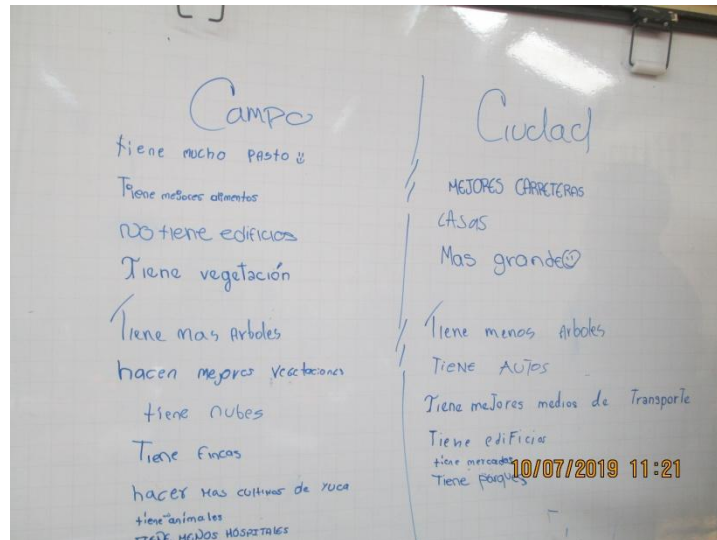 Campo
tiene mucho pasto
Tiene mejores alimentos
no tiene edificios
Tiene vegetación
Tiene mas Arboles
hacen mejores
tiene nubes
Tiene Fincas
hacer mas cultivos de yuca
tiene animales
TIENE MENOS HOSPITALES
Ciudad
MEJORES CARRETERAS
CASAS
Mas grande
Tiene menos Arboles
TIENE AUTOS
Tiene meJores medios de Transporte
Tiene ediFicios
tiene mercados
Tiene parques
10/07/2019 11:21